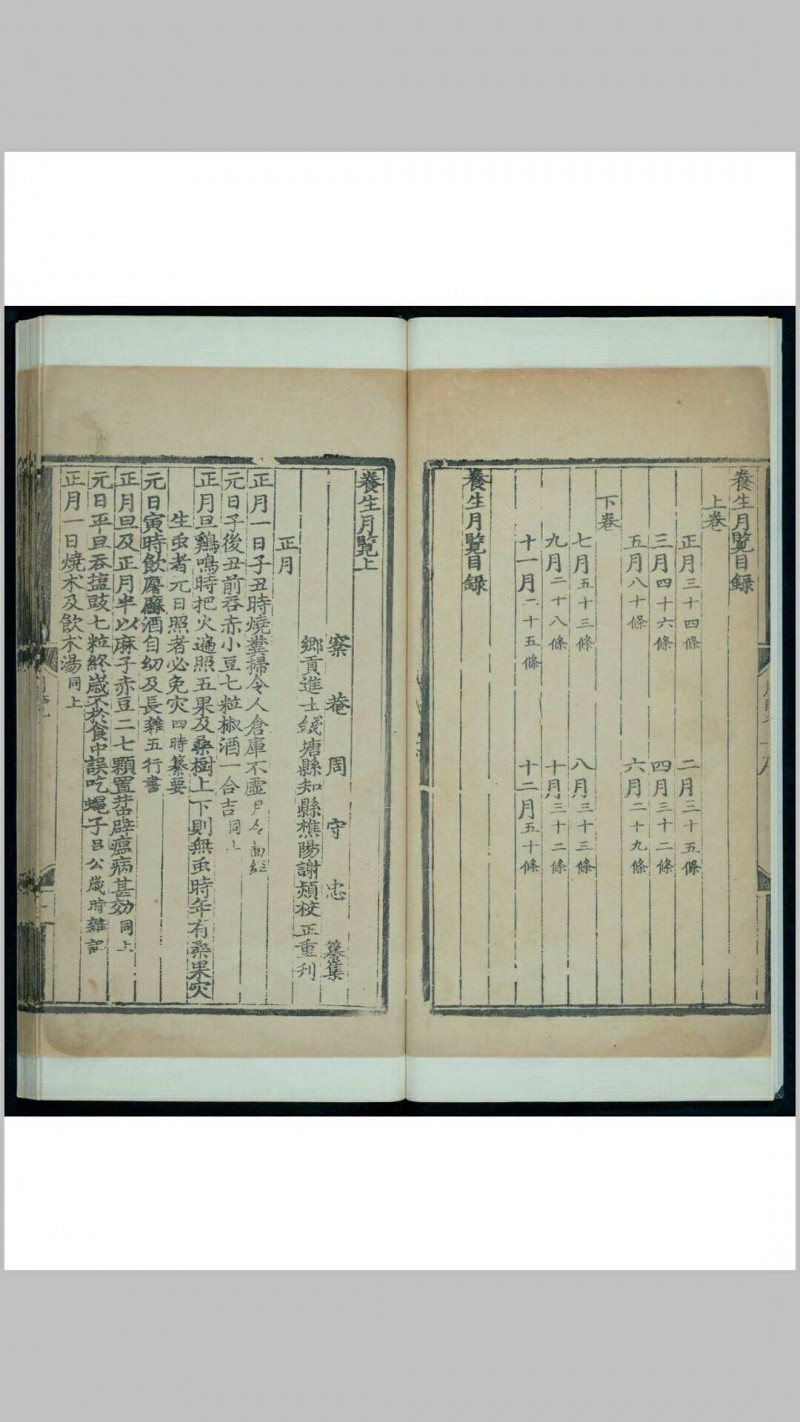 養生月覽目録
上卷
正月三十四條 二月三十五條
三月四十六條 四月三十二條
五月八十條 六月二十九條
下卷
七月五十三條 八月三十三條
九月二十八條 十月三十二條
十一月二十五條 十二月五十條
養生月覽目録
養生月覽上
窠菴周守忠纂集
鄉貢進士錢塘縣知縣樵陽謝熲校正重刋
正月
正月一日子丑時燒糞掃令人倉庫不虛
元日子後丑前吞赤小豆七粒椒酒一合吉同上
正月旦鷄鳴時把火遍照五果及桑樹上下則無虫時年有桑果灾
生虫者元日照者必免灾四時纂要
元日寅時飲屠蘇酒自幼及長雜五行書
正月旦及正月半以麻子赤豆二七顆置井中辟瘟病甚効同上
元日平旦吞塩豉七粒終歲不於食中誤吃蠅子吕公歲時雜記
正月一日燒术及飲术湯同上